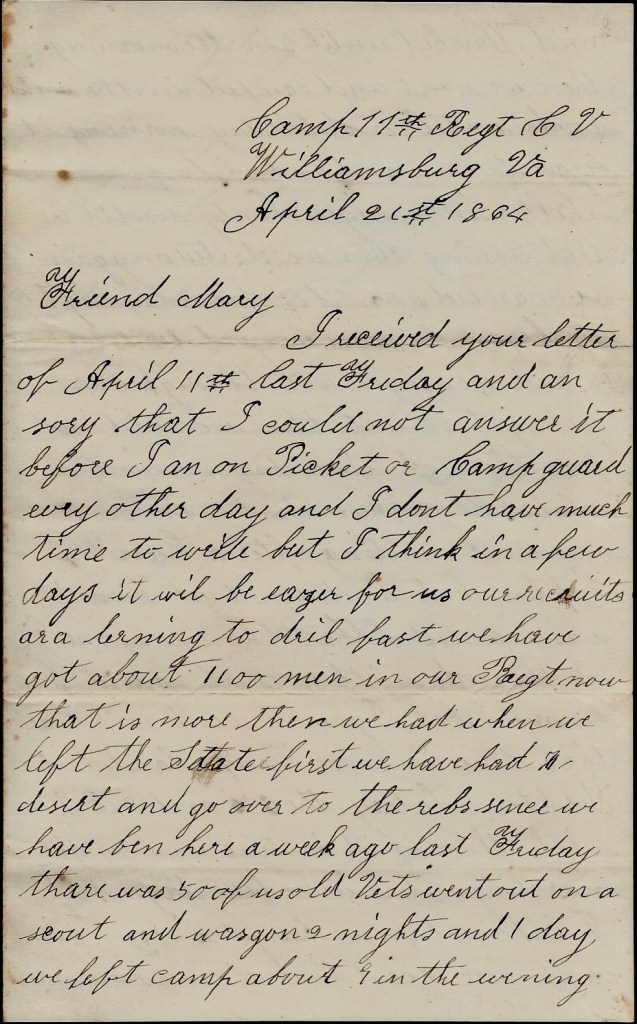 Camp 11th Regt C V
Williamsburg Va
April 21st 1864
Friend Mary
I received your letter
of April 11th last Friday and an
sory that I could not answer it
before I an on Picket or Camp guard
evry other day and I dont have much
time to write but I think in a few
days it wil be eazer for us our recruits
ara lerning to dril fast we have
got about 1100 men in our Regt now
that is more then we had when we
left the State first we have had
desert and go over to the rebs sence we
have ben here a week ago last Friday
thare was 50 of us old Vets went out on a
scout and was gon 2 nights and 1 day
we left camp about 9 in the evning